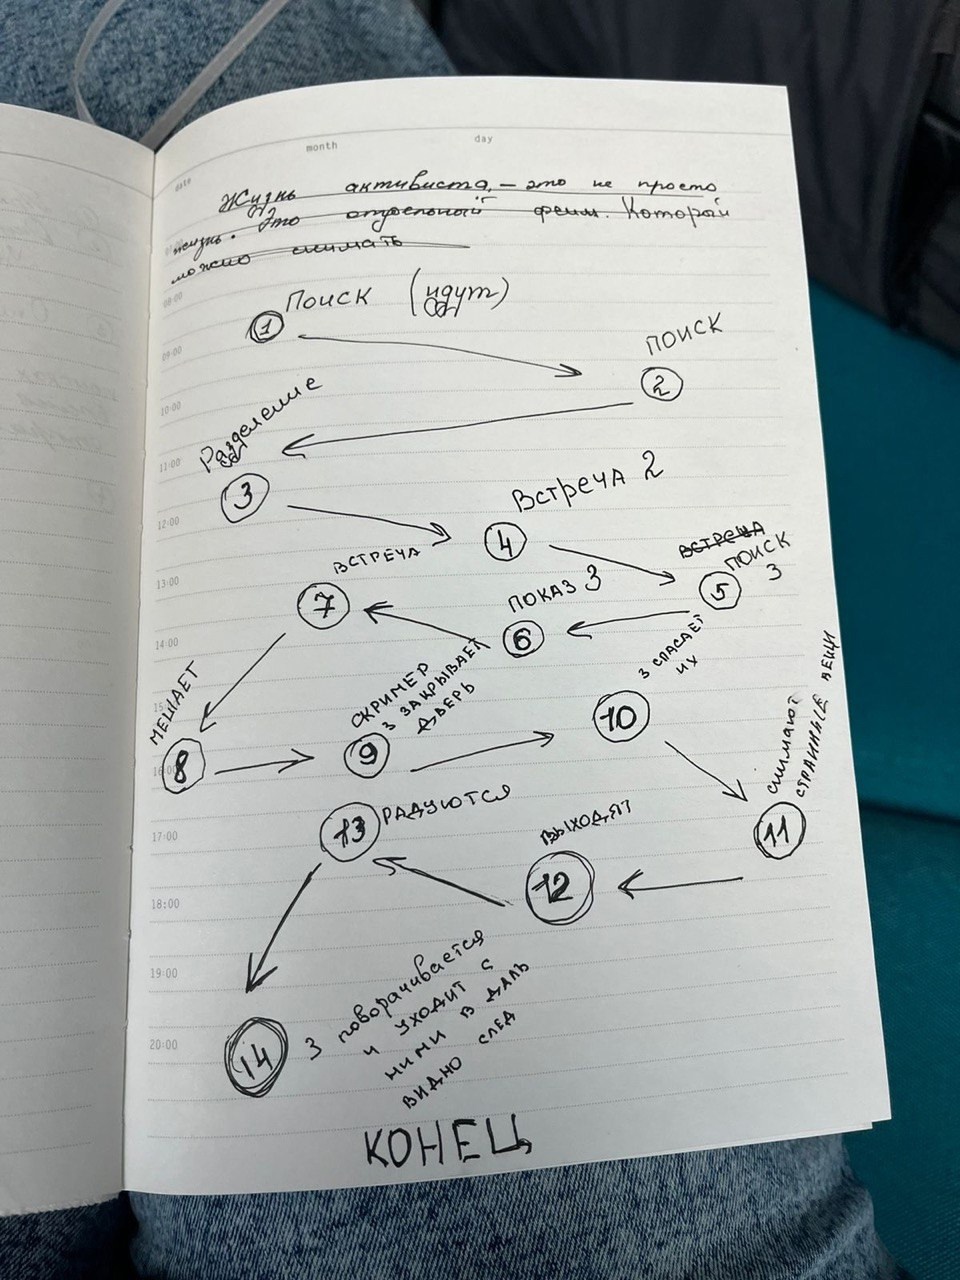 date month day
Жизнь активиста, — это не просто
жизнь. Это отдельный феим. Который
можно снимать
08:00
Поиск (идут)
1
09:00
ПОИСК
2
10:00
Разделение
11:00
3
12:00
Встреча 2
4
13:00
ВСТРЕЧА
7
ВСТРЕЧА
ПОИСК
3
5
ПОКАЗ 3
6
14:00
МЕШАЕТ
8
15
16:00
СКРИМЕР
З ЗАКРЫВАЕТ
ДВЕРЬ
9
З СПАСАЕТ
ИХ
10
СНИМАЮТ
СТРАННЫЕ ВЕЩИ
11
ВЫХОДЯТ
12
РАДУЮТСЯ
13
17:00
18:00
19:00
20:00
14
З поворачивается
и уходит с
ними в даль
видно след
КОНЕЦ